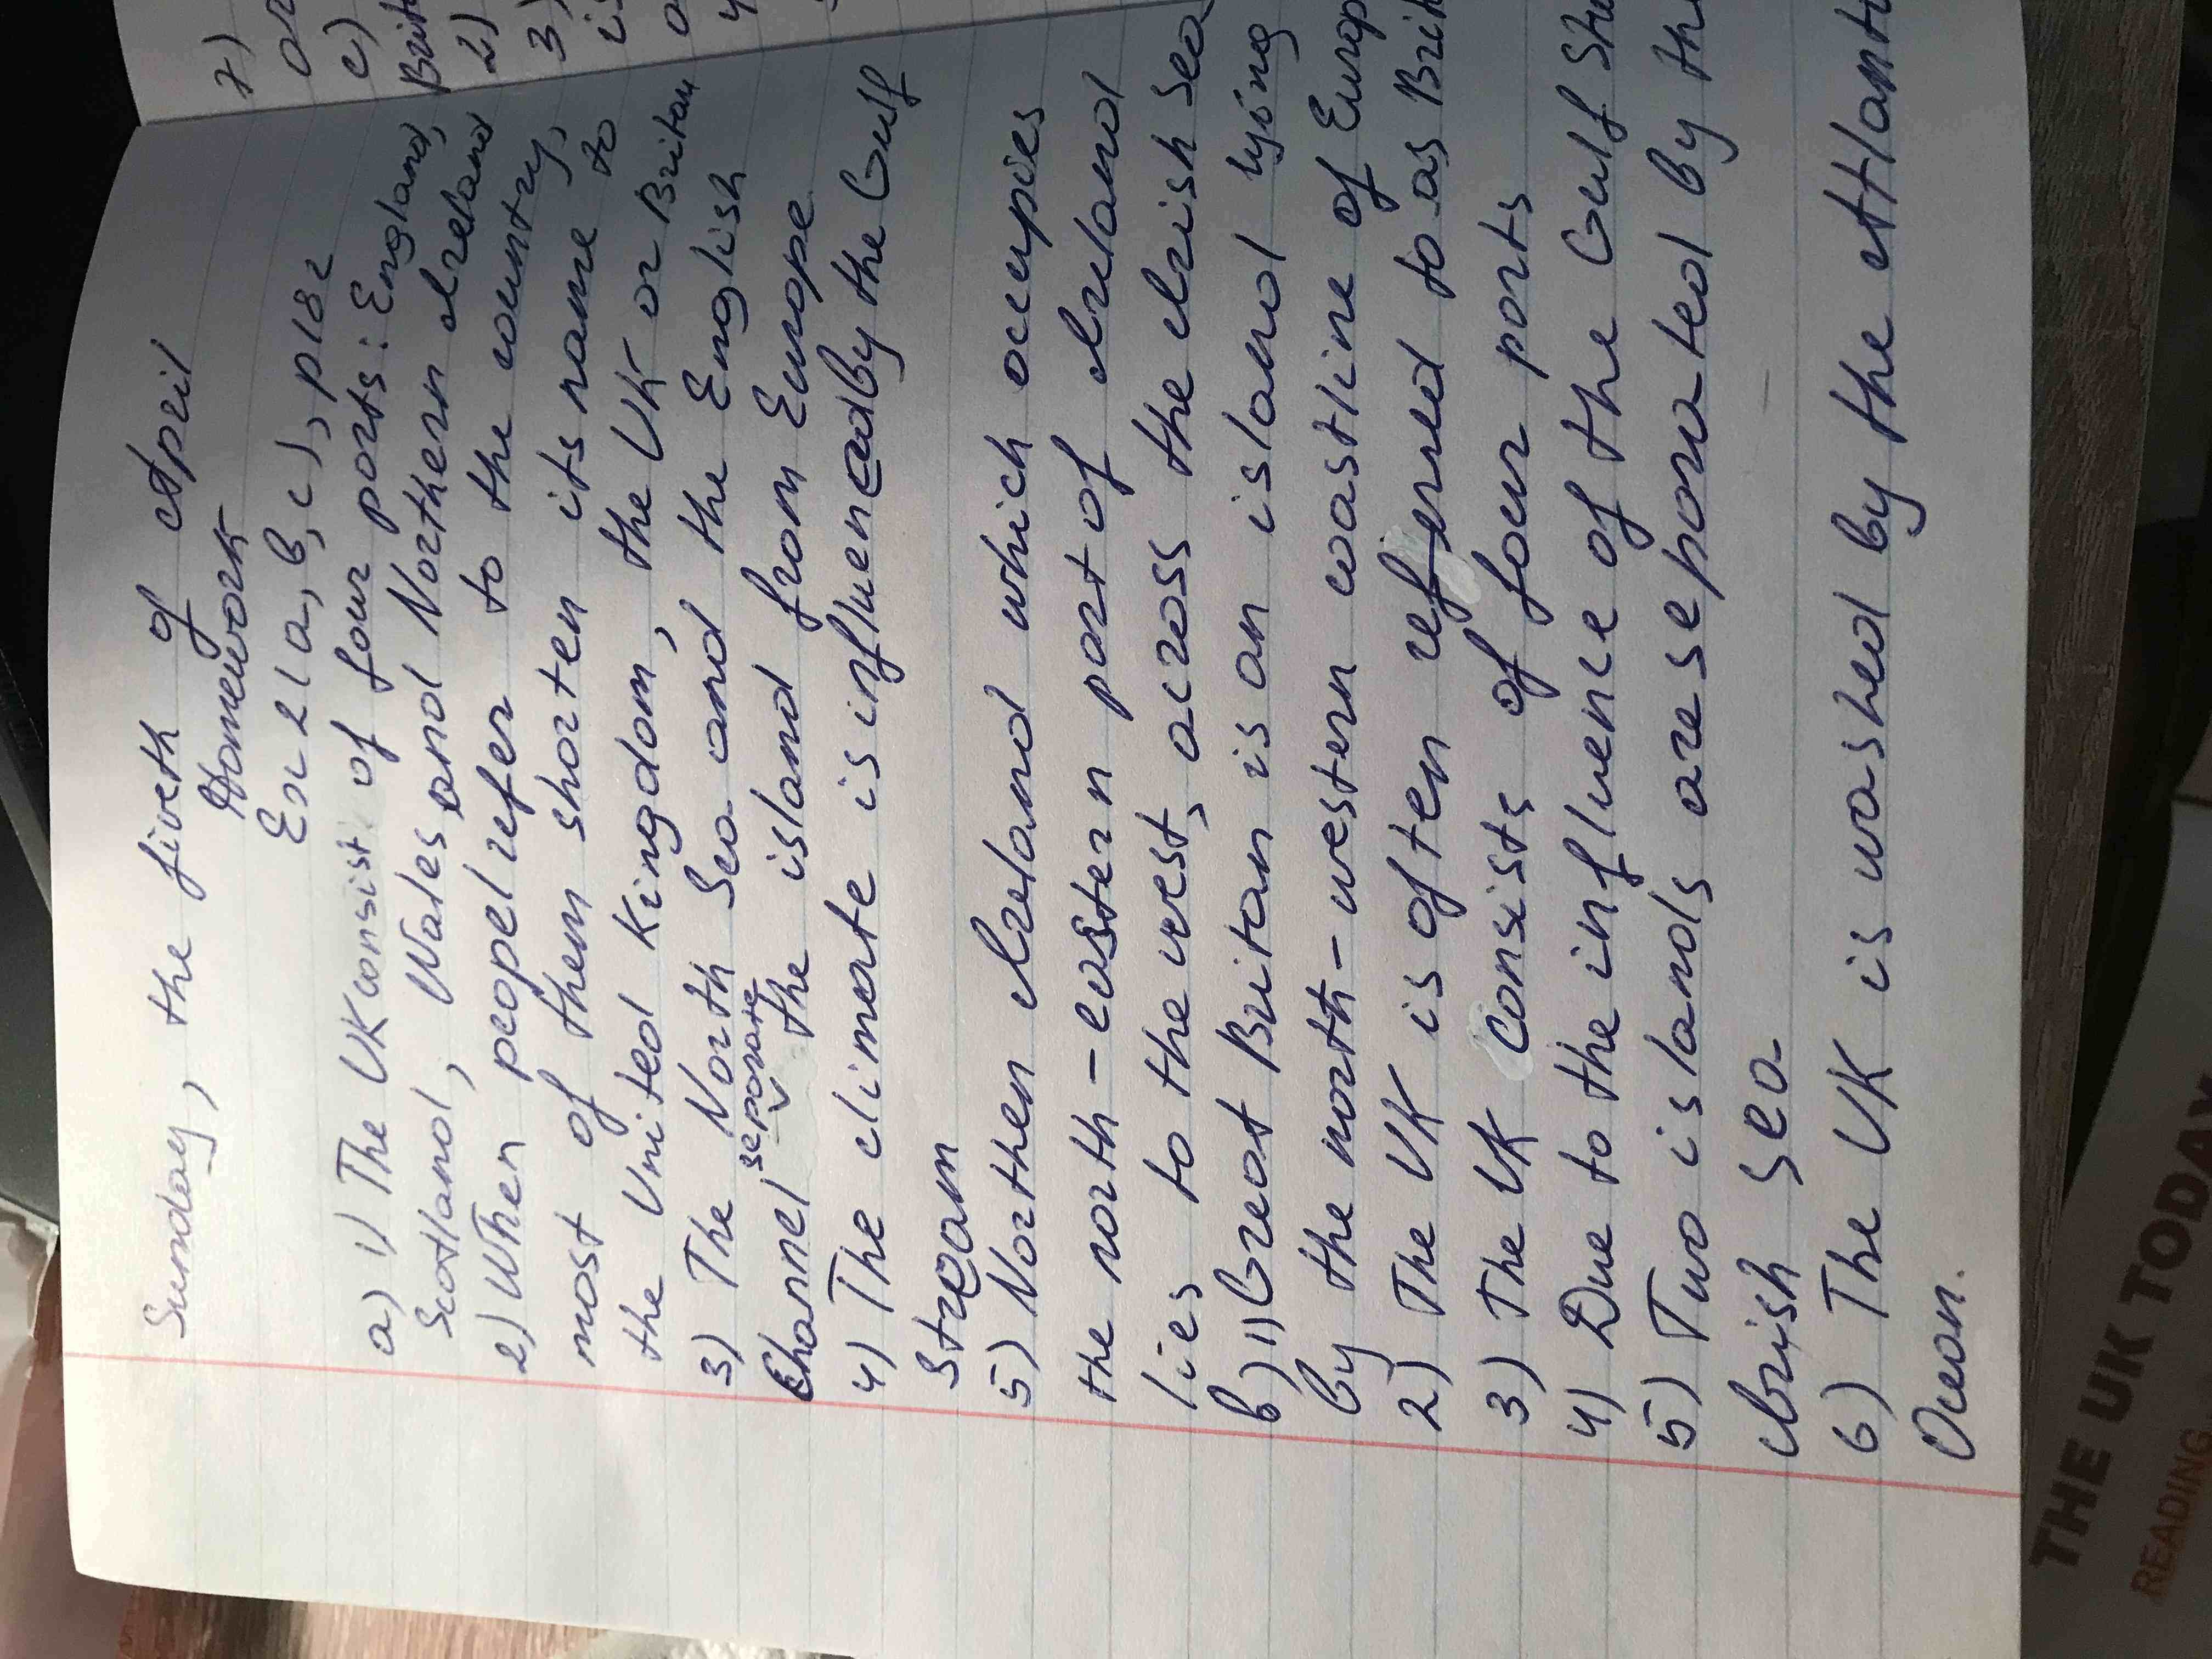 Sunday, the fiveth of April
Homework
Ex 21 a, b, c), p182
a) 1) The UK consist of four parts: England,
Scotland, Wales and Northern Ireland
2) When peopel refer to the country,
most of them shorten its name to
the United Kingdom, the UK or Britan
3) The North Sea and the English
separate
Channel the island from Europe
4) The climate is influencedby the Gulf
Stream
5) Northen Ireland which occupies
the north-eastern part of Ireland
lies to the west, across the Irish Sea
b) 1) Great Britan is an island lying
by the north-western coastline of Europ
2) The UK is often referred to as Brit
3) The UK consists of four parts
4) Due to the influence of the Gulf Stre
5) Two islands are separated by the
Irish Sea
6) The UK is washed by the Atlant
Ocean.
7)
or
c)
Brit
2)
3)
is
THE UK TODAY
READING